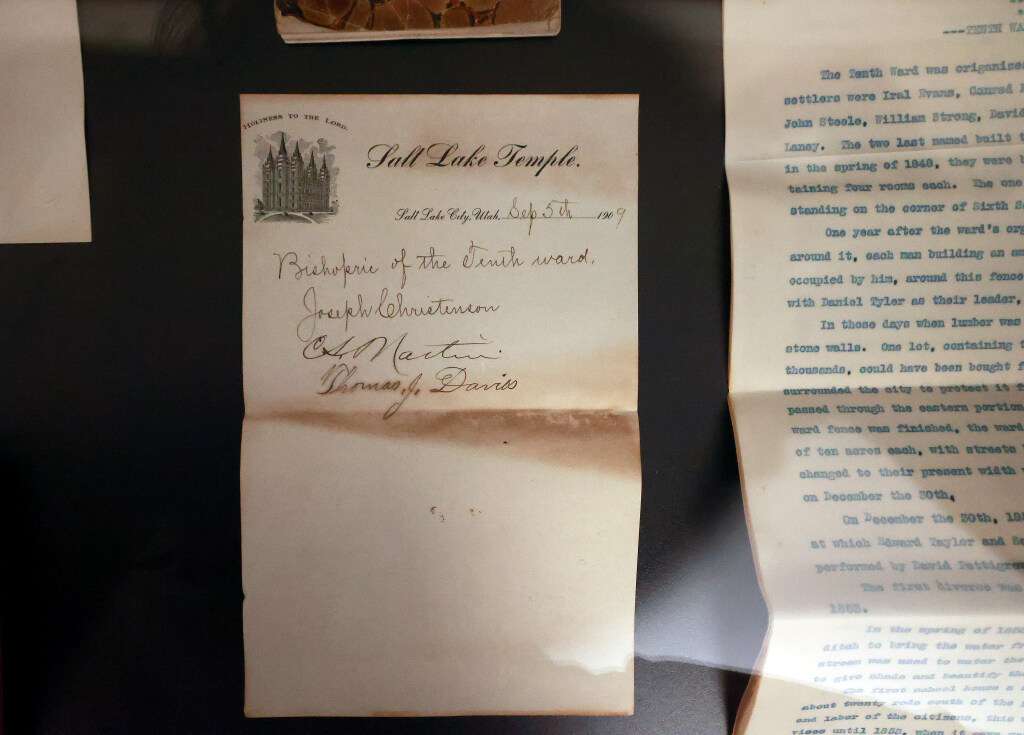 HOLINESS TO THE LORD.
Salt Lake Temple.
Salt Lake City, Utah, Sep 5th 1909
Bishopric of the Tenth ward.
Joseph Christenson
Martin
Thomas J. Davis
---TENTH WA
The Tenth Ward was origanise
settlers were Iral Evans, Conrad
John Steele, William Strong, David
Laney. The two last named built t
in the spring of 1849, they were b
taining four rooms each. The one
standing on the corner of Sixth S
One year after the ward's org
around it, each man building an am
occupied by him, around this fence
with Daniel Tyler as their leader,
In those days when lumber was
stone walls. One lot, containing
thousands, could have been bought f
surrounded the city to protect it f
passed through the eastern portion
ward fence was finished, the ward
of ten acres each, with streets
changed to their present width
on December the 30th,
On December the 30th, 18
at which Edward Taylor and Se
performed by David Pettigre
The first divorce was
1853.
In the spring of 185
ditch to bring the water fr
stream was used to water the
to give shade and beautify the
The first school house
about twenty rods south of the
and labor of the citizens, this
vices until 1853, when it